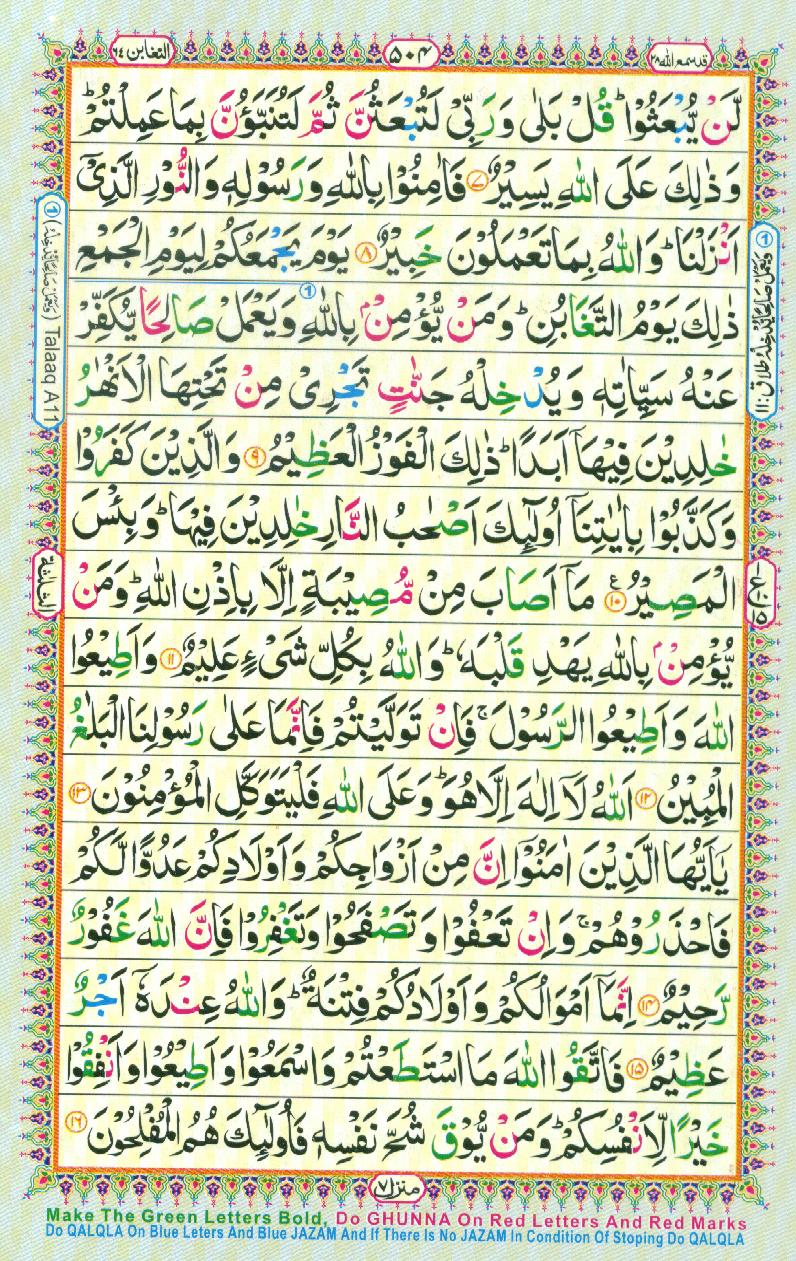 قد سمع الله ۲۸
۵۰۴
التغابن ۶۴
لَّنْ يُّبْعَثُوْا ؕ قُلْ بَلٰى وَرَبِّيْ لَتُبْعَثُنَّ ثُمَّ لَتُنَبَّؤُنَّ بِمَا عَمِلْتُمْ ؕ
وَذٰلِكَ عَلَى اللّٰهِ يَسِيْرٌ ۷ فَاٰمِنُوْا بِاللّٰهِ وَرَسُوْلِهٖ وَالنُّوْرِ الَّذِيْۤ
اَنْزَلْنَا ؕ وَاللّٰهُ بِمَا تَعْمَلُوْنَ خَبِيْرٌ ۸ يَوْمَ يَجْمَعُكُمْ لِيَوْمِ الْجَمْعِ
ذٰلِكَ يَوْمُ التَّغَابُنِ ؕ وَمَنْ يُّؤْمِنْۢ بِاللّٰهِ وَيَعْمَلْ صَالِحًا يُّكَفِّرْ
عَنْهُ سَيِّاٰتِهٖ وَيُدْخِلْهُ جَنّٰتٍ تَجْرِيْ مِنْ تَحْتِهَا الْاَنْهٰرُ
خٰلِدِيْنَ فِيْهَاۤ اَبَدًا ؕ ذٰلِكَ الْفَوْزُ الْعَظِيْمُ ۹ وَالَّذِيْنَ كَفَرُوْا
وَكَذَّبُوْا بِاٰيٰتِنَاۤ اُولٰٓئِكَ اَصْحٰبُ النَّارِ خٰلِدِيْنَ فِيْهَا ؕ وَبِئْسَ
الْمَصِيْرُ ۱۰ مَاۤ اَصَابَ مِنْ مُّصِيْبَةٍ اِلَّا بِاِذْنِ اللّٰهِ ؕ وَمَنْ
يُّؤْمِنْۢ بِاللّٰهِ يَهْدِ قَلْبَهٗ ؕ وَاللّٰهُ بِكُلِّ شَيْءٍ عَلِيْمٌ ۱۱ وَاَطِيْعُوا
اللّٰهَ وَاَطِيْعُوا الرَّسُوْلَ ۚ فَاِنْ تَوَلَّيْتُمْ فَاِنَّمَا عَلٰى رَسُوْلِنَا الْبَلٰغُ
الْمُبِيْنُ ۱۲ اَللّٰهُ لَاۤ اِلٰهَ اِلَّا هُوَ ؕ وَعَلَى اللّٰهِ فَلْيَتَوَكَّلِ الْمُؤْمِنُوْنَ ۱۳
يٰۤاَيُّهَا الَّذِيْنَ اٰمَنُوْۤا اِنَّ مِنْ اَزْوَاجِكُمْ وَاَوْلَادِكُمْ عَدُوًّا لَّكُمْ
فَاحْذَرُوْهُمْ ۚ وَاِنْ تَعْفُوْا وَتَصْفَحُوْا وَتَغْفِرُوْا فَاِنَّ اللّٰهَ غَفُوْرٌ
رَّحِيْمٌ ۱۴ اِنَّمَاۤ اَمْوَالُكُمْ وَاَوْلَادُكُمْ فِتْنَةٌ ؕ وَاللّٰهُ عِنْدَهٗۤ اَجْرٌ
عَظِيْمٌ ۱۵ فَاتَّقُوا اللّٰهَ مَا اسْتَطَعْتُمْ وَاسْمَعُوْا وَاَطِيْعُوْا وَاَنْفِقُوْا
خَيْرًا لِّاَنْفُسِكُمْ ؕ وَمَنْ يُّوْقَ شُحَّ نَفْسِهٖ فَاُولٰٓئِكَ هُمُ الْمُفْلِحُوْنَ ۱۶
Talaaq A11
منزل ۷
Make The Green Letters Bold, Do GHUNNA On Red Letters And Red Marks
Do QALQLA On Blue Leters And Blue JAZAM And If There Is No JAZAM In Condition Of Stoping Do QALQLA